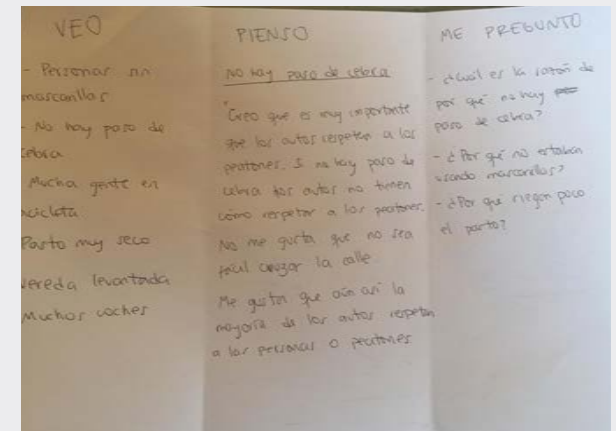 VEO
- Personas sin
mascarillas
- No hay paso de
cebra
Mucha gente en
bicicleta
Pasto muy seco
vereda levantada
Muchos coches
PIENSO
No hay paso de cebra
Creo que es muy importante
que los autos respeten a los
peatones. Si no hay paso de
cebra los autos no tienen
cómo respetar a los peatones.
No me gusta que no sea
fácil cruzar la calle.
Me gusta que aún así la
mayoría de los autos respetan
a las personas o peatones
ME PREGUNTO
- ¿Cuál es la razón de
por qué no hay
paso de cebra?
- ¿Por qué no estaban
usando mascarillas?
- ¿Por qué riegan poco
el pasto?